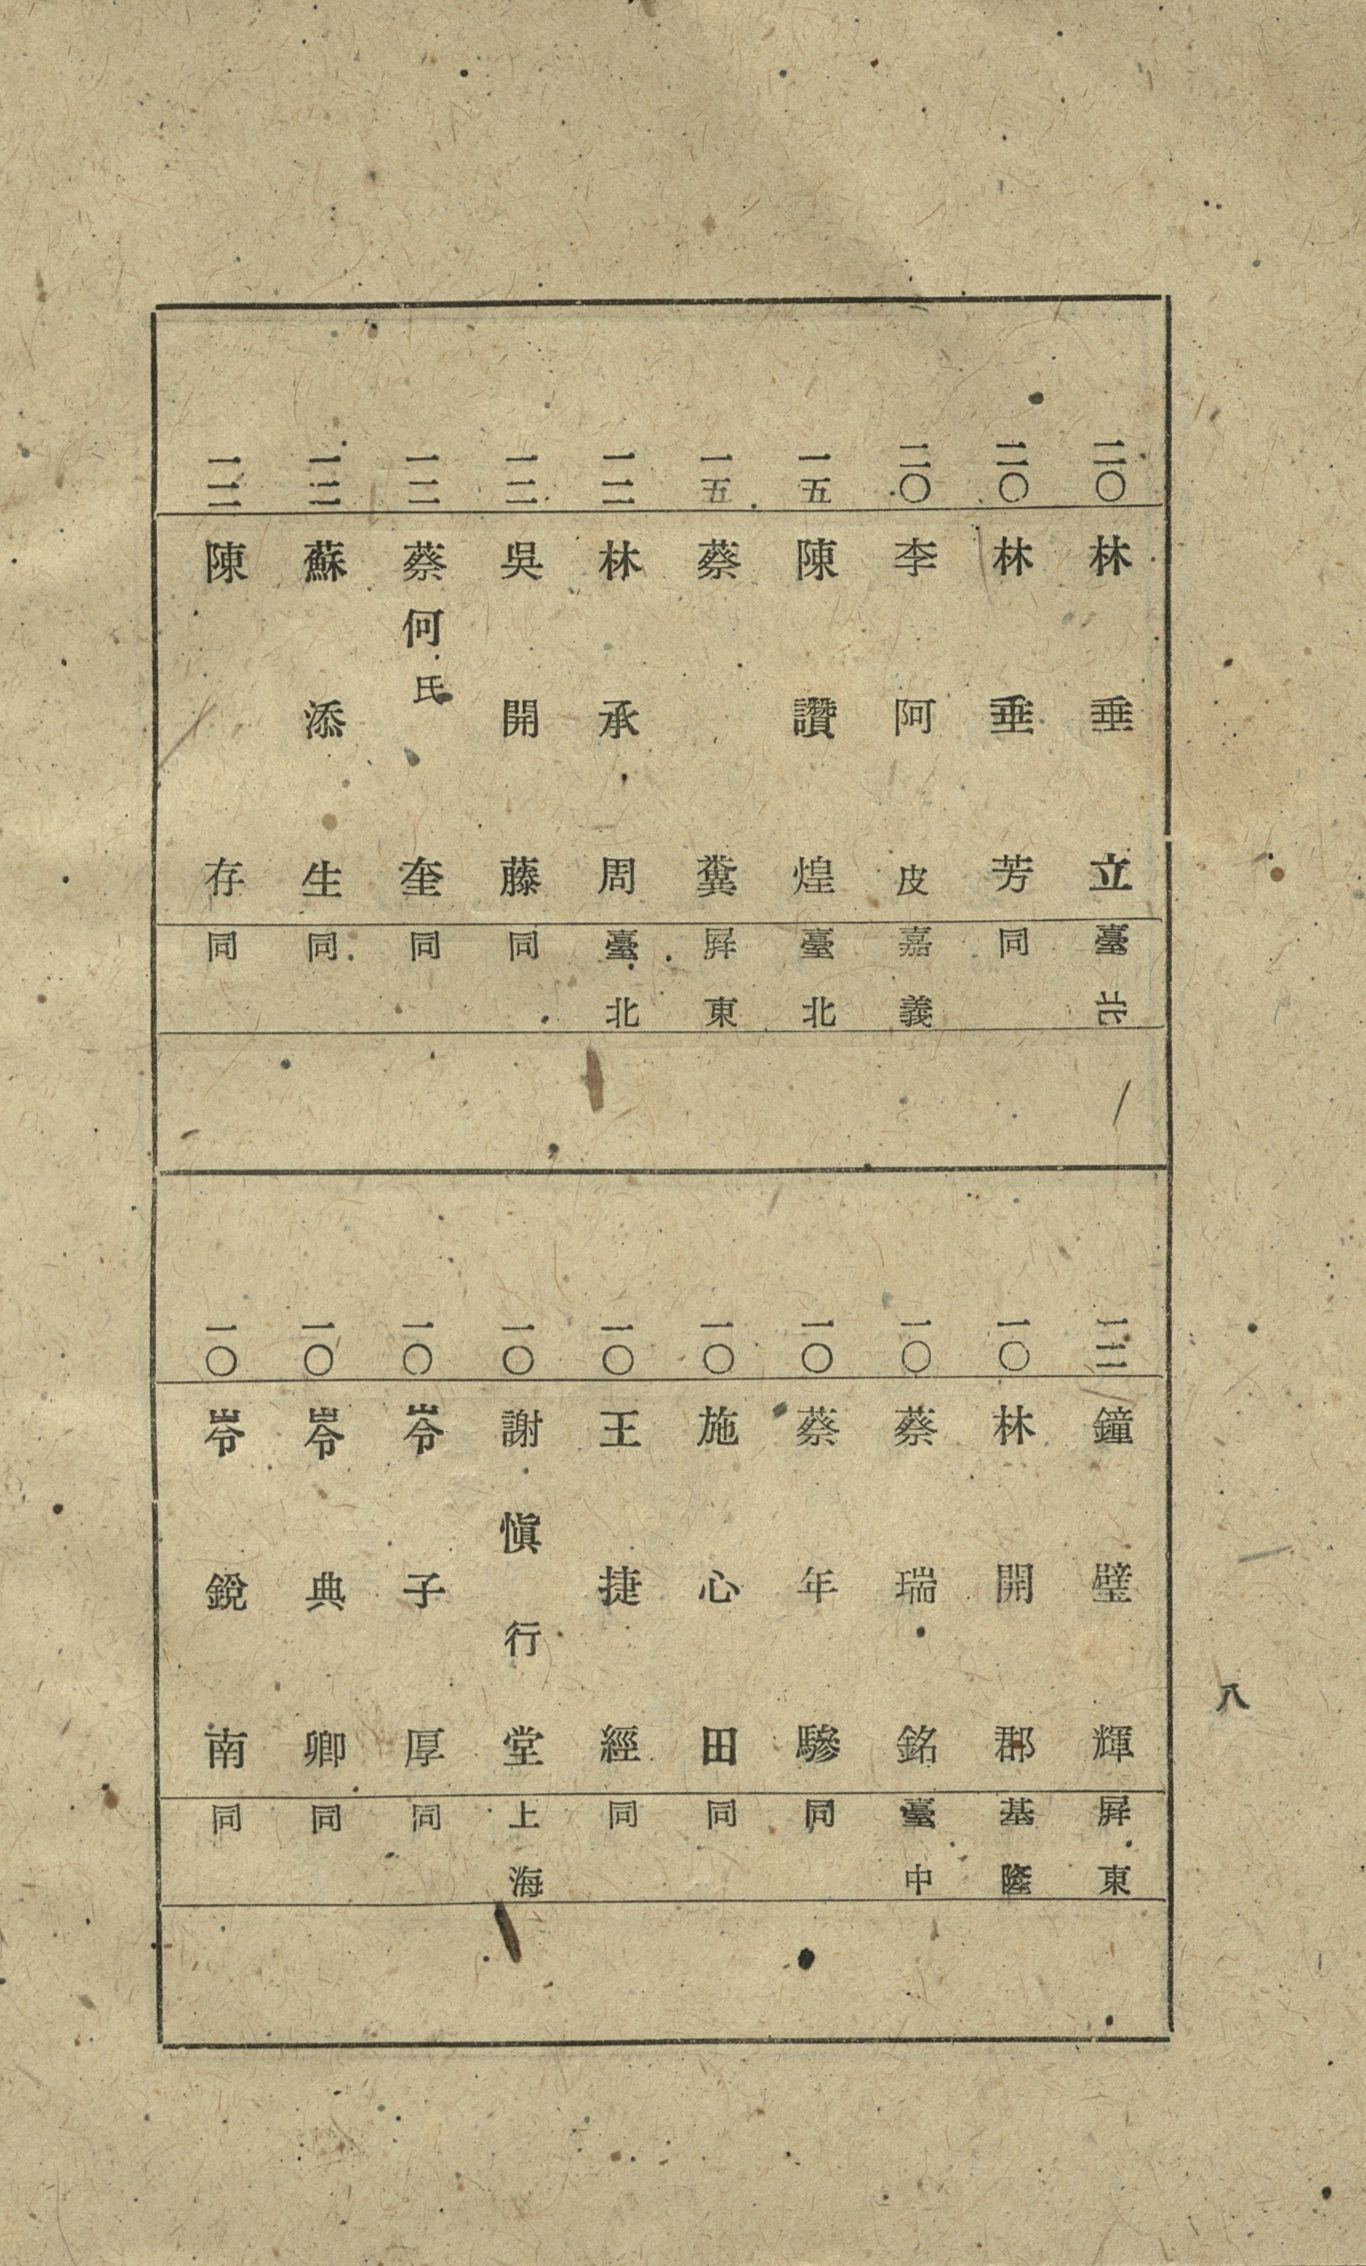 二〇 林垂立 臺北
二〇 林垂芳 同
二〇 李阿皮 嘉義
一五 陳讚煌 臺北
一五 蔡糞 屛東
一二 林承周 臺北
一二 吳開藤 同
一二 蔡何氏奎 同
一二 蘇添生 同
一二 陳存 同
一二 鐘璧輝 屛東
一〇 林開郡 基隆
一〇 蔡瑞銘 臺中
一〇 蔡年驂 同
一〇 施心田 同
一〇 王捷經 同
一〇 謝愼行堂 上海
一〇 岺子厚 同
一〇 岺典卿 同
一〇 岺銳南 同
八